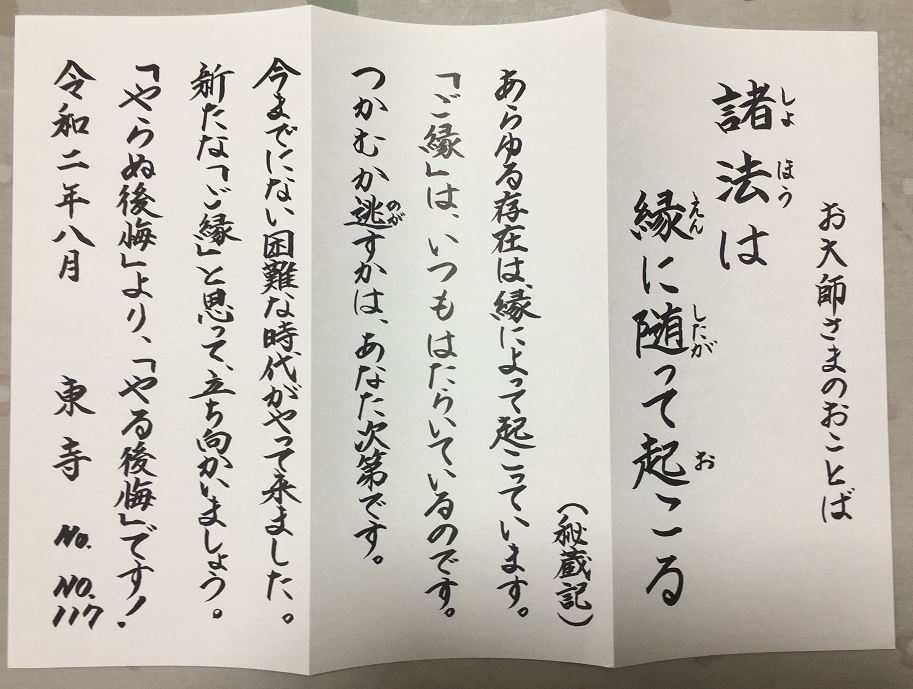 お大師さまのおことば
諸法は
しよ
ほう
縁に随って起こる
えん
したが
お
（秘蔵記）
あらゆる存在は、縁によって起こっています。
「ご縁」は、いつもはたらいているのです。
つかむか逃すかは、あなた次第です。
のが
今までにない困難な時代がやって来ました。
新たな「ご縁」と思って、立ち向かいましょう。
「やらぬ後悔」より、「やる後悔」です！
令和二年八月 東寺 No. NO. 117